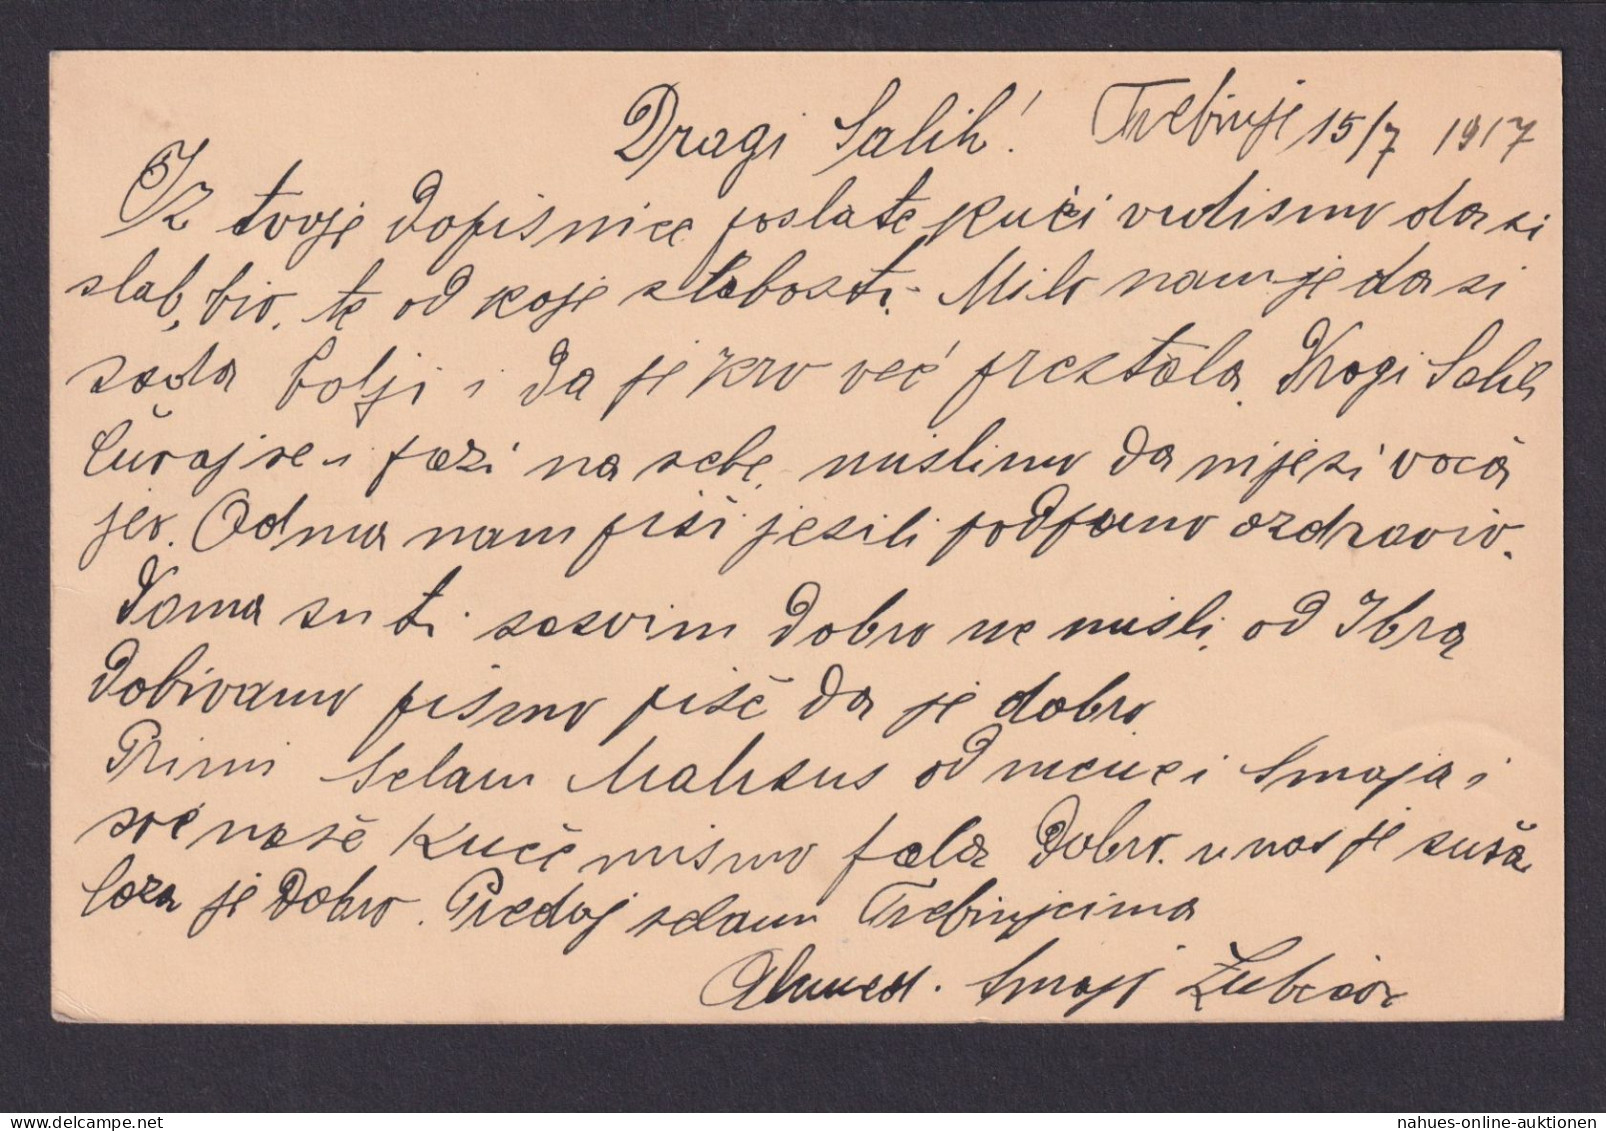 Dragi Salih! Trebinje 15/7 1917
Iz tvoje dopisnice poslate kući vidismo da si
slab, bio, te od koje slabosti. Milo nam je da si
sada bolji i da je krv već prestala. Dragi Salih
čuvaj se i pazi na sebe, mislimo da nijesi voća
jeo. Odma nam piši jesili podpuno ozdravio.
Doma su ti sasvim dobro ne misli, od Ibra
dobivamo pismo piše da je dobro
Primi Selam Mahsus od mene i Smaja i
sve naše kuće mismo fala dobro. u nas je suša
loza je dobro. Predaj selam Trebinjcima
Ahmed. Smaji Zubčević